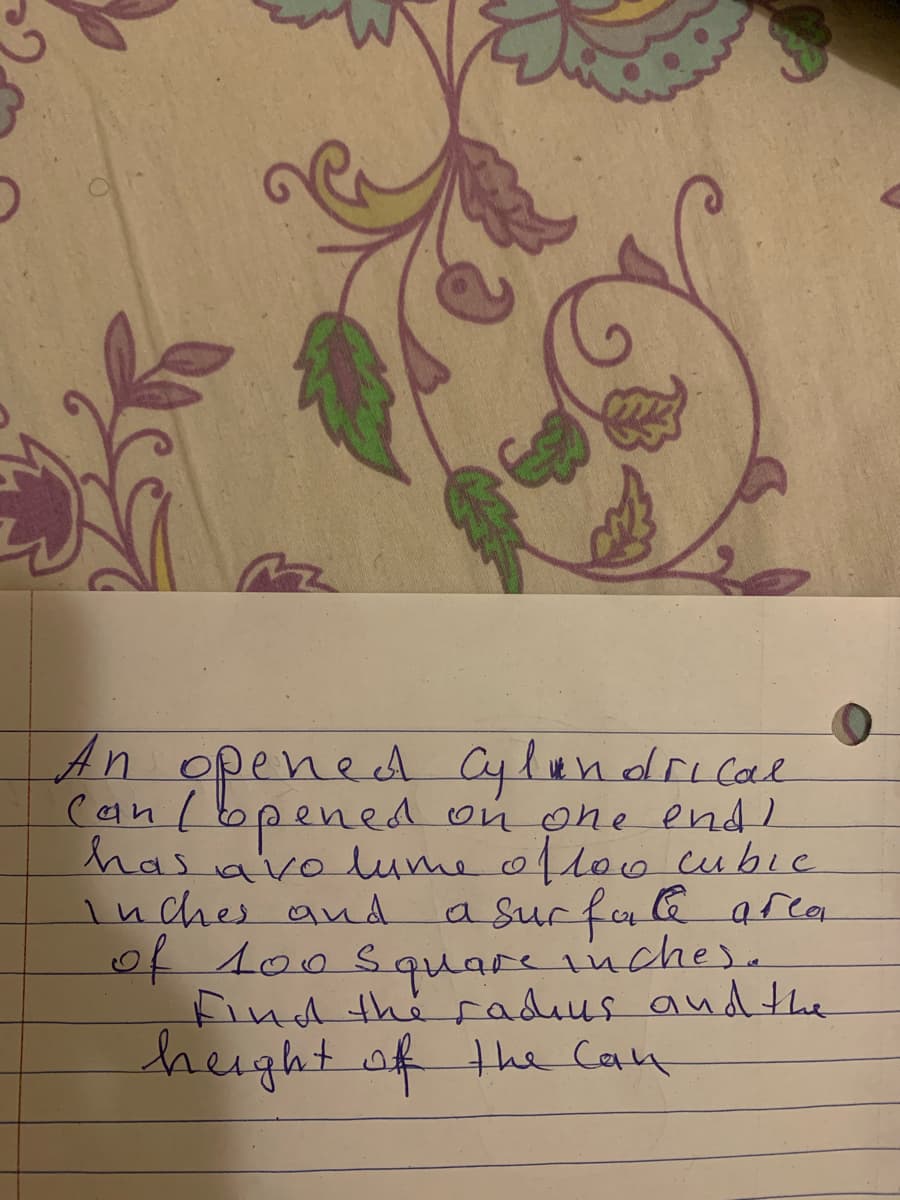 An opened Cylindrical
Can ( opened on one end )
has a volume of 100 cubic
inches and a surface area
of 100 square inches.
Find the radius and the
height of the Can